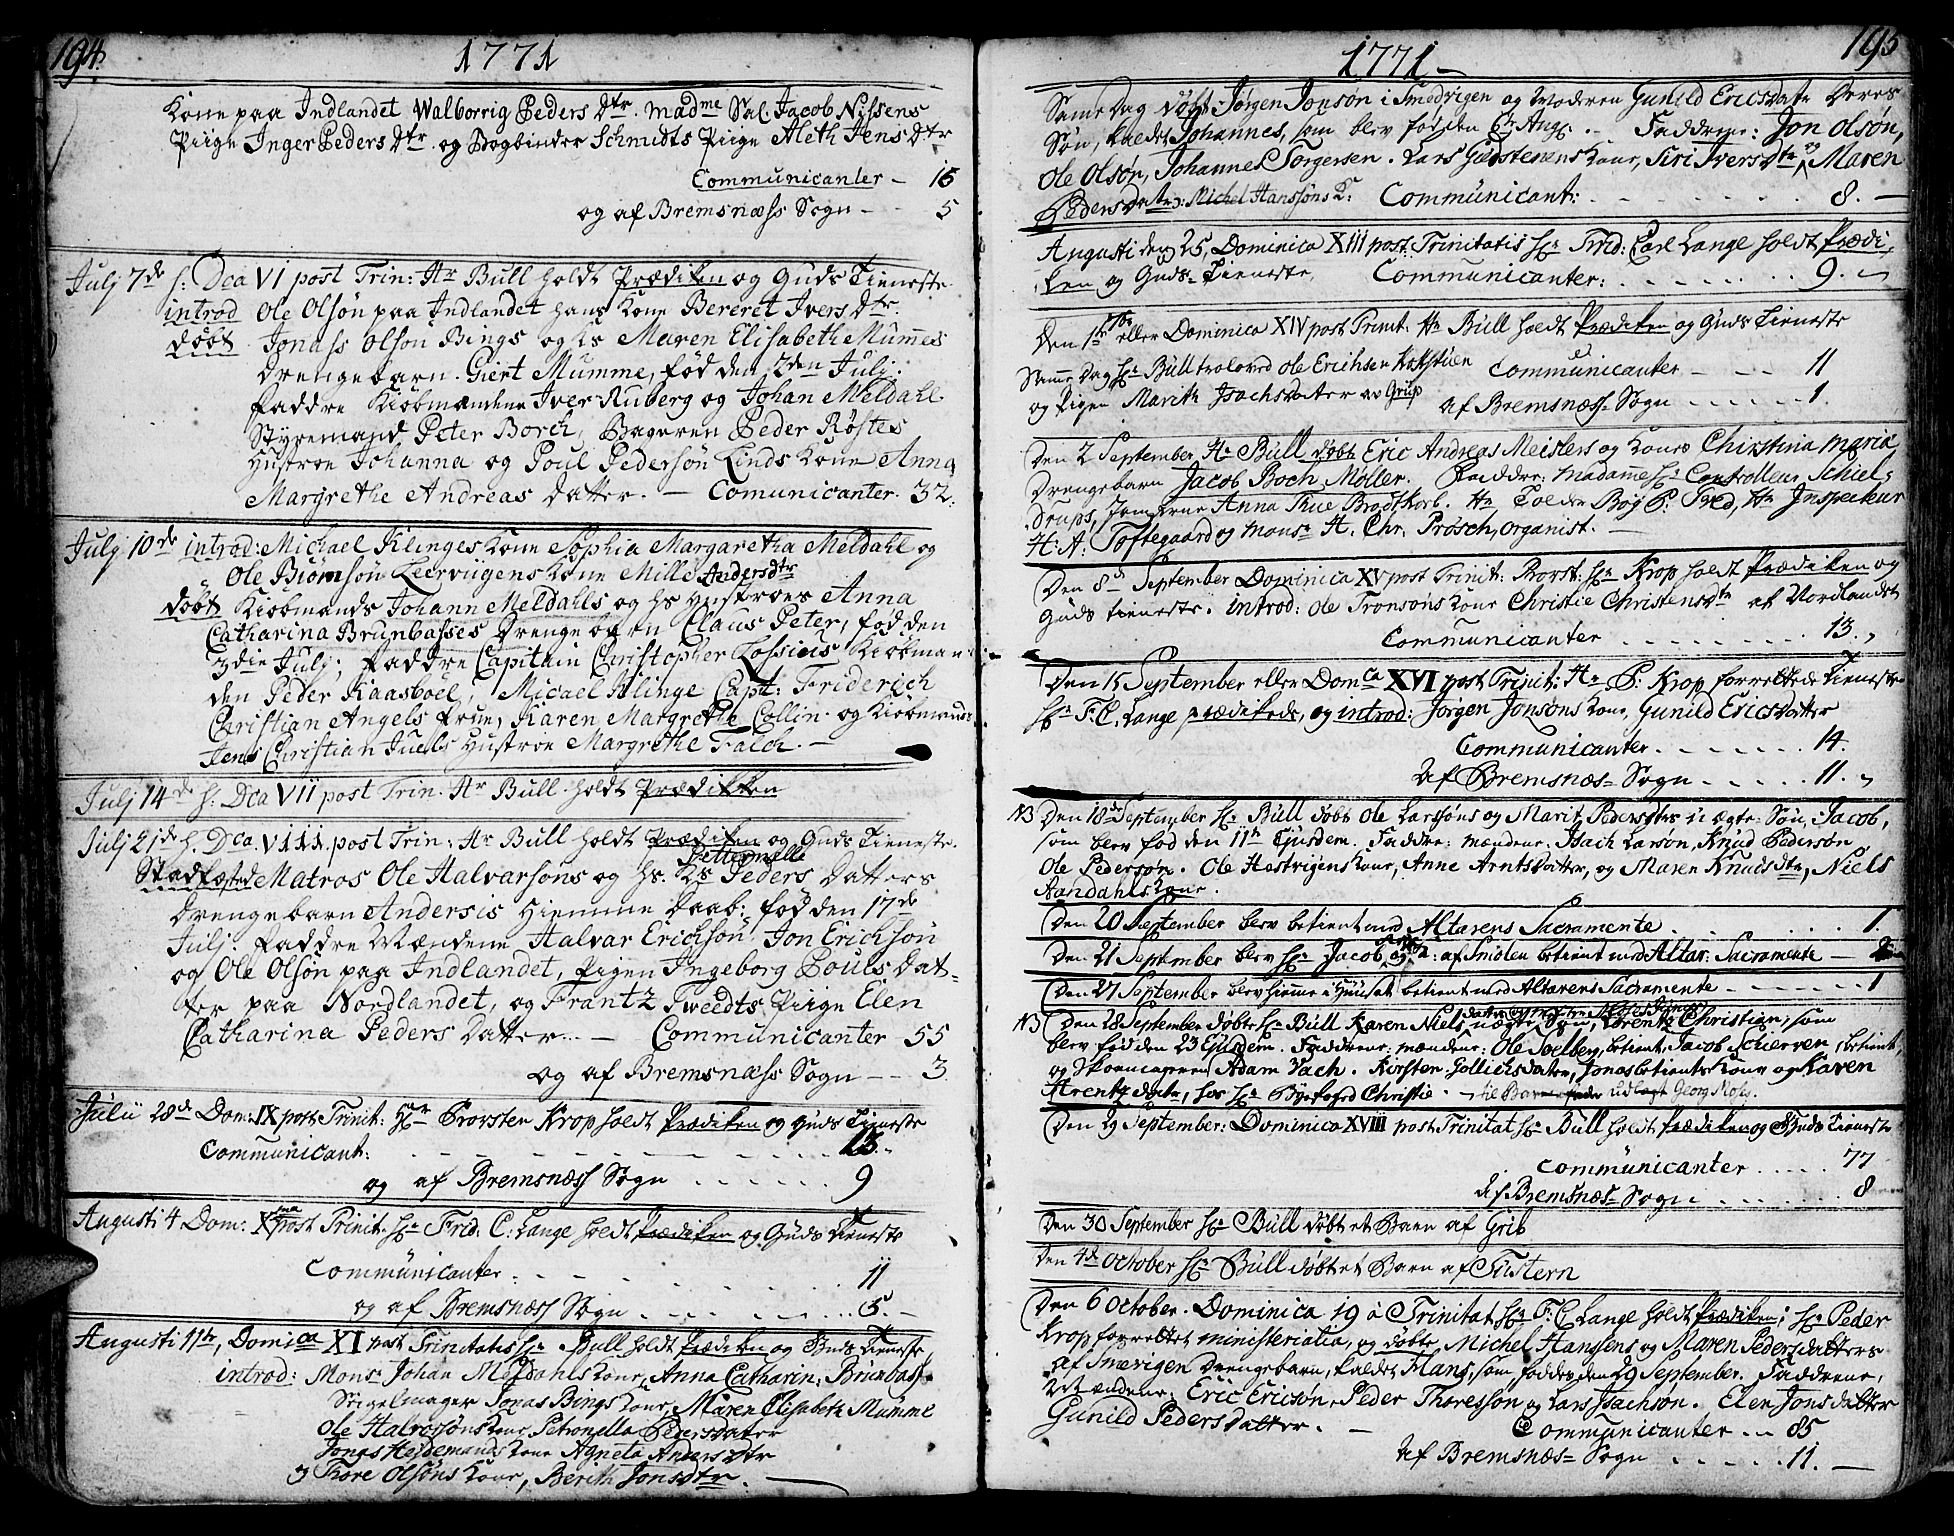 194.
1771
Kone paa Indlandet Walborrig Peders Dtr. Madme Sal. Jacob Nissens
Piige Inger Peders Dtr. og Bogbinder Schmidts Piige Aleth Jens Dtr
Communicanter – 15
og af Bremsnæss Sogn – – 5
Julj 7de h: Dca VI post Trin: Hr Bull holdt Prædiken og Guds Tieneste.
introd Ole Olsøn paa Indlandet hans Kone Bereret Ivers Dtr.
døbt Jonass Olsøn Bings og hs Maren Elisabeth Mummes
Drengebarn. Giert Mumme, fød den 2den Julj:
Faddre Kiøbmændene Iver Ruberg og Johan Meldahl
Styremand Peter Borch, Bageren Peder Røstes
Hustroe Johanna og Poul Pedersøn Linds Kone Anna
Margrethe Andreas Datter. – Comunicanter. 32.
Julj 10de introd: Michael Klinges Kone Sophia Margaretha Meldahl og
Ole Biørnsøn Leervigens Kone Mille Andersdtr
døbt Kiøbmands Johann Meldalls og hs Hustroes Anna
Catharina Brunbasses Drengebarn Claus Peter, fød den
3die Julj; Faddre Capitain Christopher Kossius Kiøbman-
den Peder Kaasboel, Micael Klinge Capt: Friderich
Christian Angels Frue, Karen Margrethe Collin og Kiøbmands
Jens Christian Juels Hustroe Margrethe Falch. –
Julj 14de h: Dca VII post Trin. Hr Bull holdt Prædikken
Julj 21de h. Dca. VIII. post Trin: Hr Bull holdt Prædiken og Guds Tieneste.
Stadfæsted Matros Ole Halvarsøns og hs. Ks Petternelle Peders Datters
Drengebarn Andersis Hiemme Daab: fød den 17de
Julj. Faddre Mændene Halvar Erichsøn, Jon Erichsøn
og Ole Olsøn paa Indlandet, Pigen Ingeborg Pouls Dat-
ter paa Nordlandet, og Frantz Tweedts Piige Elen
Catharina Peders Datter. – Communicanter 55
og af Bremsnæss Sogn – – 3.
Julii 28de Dom: IX post Trinit: Hr Provsten Krop holdt Prædiken og Guds Tieneste
Communicant: 13.
og af Bremsnæss Sogn 9
Augusti 4 Dom: Xma post Trinit. Hr Frid: C: Lange holdt Prædiken og Guds Tieneste
Communicanter: 11
og af Bremsnæss Sogn 5. –
Augusti 11te, Domica XI post Trinitatis Hr Bull holdt Prædiken og Guds Tieneste,
introd: Mons. Johan Meldahls Kone, Anna Catharin: Brunbass.
Seigelmager Jonas Bings Kone, Maren Elisabeth Mumme
Ole Halvorsøns Kone Petronella Pedersdater
Jonas Heidemands Kone Agneta Anders Dtr
Tore Olsøns Kone, Berith Jonsdtr. –
195
1771 –
Same Dag døbt Jørgen Jonsøn i Smedvigen og Moderen Gunild Ericsdatter Deres
Søn, kaldet Johannes, som blev fød den Aug. – Faddrene: Jon Olsøn,
Ole Olsøn, Johannes Torgersen. Lars Kone, Siri Iversdtr og Maren
Pedersdatter: Michel Hanssøns K. Communicant: 8. –
Augusti den 25, Dominica XIII post Trinitatis Hr Frid: Carl Lange holdt Prædi-
ken og Guds-Tieneste, Communicanter: 9.
Den 1te 7br eller Dominica XIV post Trinit: Hr Bull holdt Prædiken og Guds Tieneste
Samme Dag Hr Bull trolovede Ole Erichsen Communicanter – – 11
og Pigen Marith Isachsdater av Grip af Bremsnæss-Sogn 1.
Den 2 September Hr Bull døbt Eric Andreas Meislers og Kones Christina Maria
Drengebarn Jacob Boch Møller. Faddre: Madame Sl Controlleur Schiel-
drups, Jomfrue Anna Thue Brodtkorb. Hr Tolder Boy P: Fred, Hr Inspecteur
H: A: Toftegaard og Monsr H. Chr. Prøsch, Organist.
Den 8de September Dominica XV post Trinit: Provst: Hr Krop holdt Prædiken og
Guds tieneste. introd: Ole Tronsøns Kone Christie Christensdtr af Nordlandet
Communicanter 13.
Den 15 September eller Domca XVI post Trinit: Hr P: Krop forrettede Tieneste
Hr F: C. Lange prædikede, og introd: Jørgen Jonsøns Kone, Gunild Ericsdatter
Communicanter. 14.
af Bremsnæs-Sogn 11.
N3 Den 18de September Hr Bull døbt Ole Larssøns og Marit Pedersdters Søn, Jacob,
som blev fød den 11te Ejusdem. Faddre: mændene: Isach Larsøn, Knud Pedersøn
Ole Pedersøn. Ole Hestvigens Kone, Anne Arntsdatter, og Maren Knudsdtr, Niels
Aandahls Kone.
Den 20 September blev betient med Altarens Sacramente. 1.
Den 21 September blev Hr Jacob af Smølen betient med Altar: Sacramente – 2
Den 27 September blev hiemme i Huuset betient med Altarens Sacramente 1
N3 Den 28 September døbte Hr Bull Karen Niels uægte Søn, Lorentz Christian, som
blev fød den 23 Ejusdem. Faddrene: mændene: Ole Solberg, betient, Jacob Schierven, betient,
og Skomageren Adam Vach. Kirsten Gollichsdater, Jonas betients Kone og Karen
Arentzdater, hos Hr Byefoged Christie. – til Barnefader udlagt Georg Moss.
Den 29 September: Dominica XVIII post Trinitat Hr Bull holdt Prædiken og Guds Tieneste
Communicanter 77
af Bremsnæs-Sogn 8
Den 30 September Hr Bull døbt et Barn af Grib
Den 4de October Hr Bull døbt et Barn af Tustern
Den 6 October. Dominica 19 a Trinitat Hr F: C Lange holdt Prædiken; Hr Peder
Krop forrettet ministerialia, og døbte Michel Hanssens og Maren Pedersdatters
af Smevigen Drengebarn, kaldet Hans, som fødtes den 29 September. Faddrene,
Mændene: Eric Ericsøn, Peder Thoressøn og Lars Isachsøn. Elen Jonsdatter
Gunild Pedersdatter. – Communicanter – 85
af Bremsnæs-Sogn 11. –